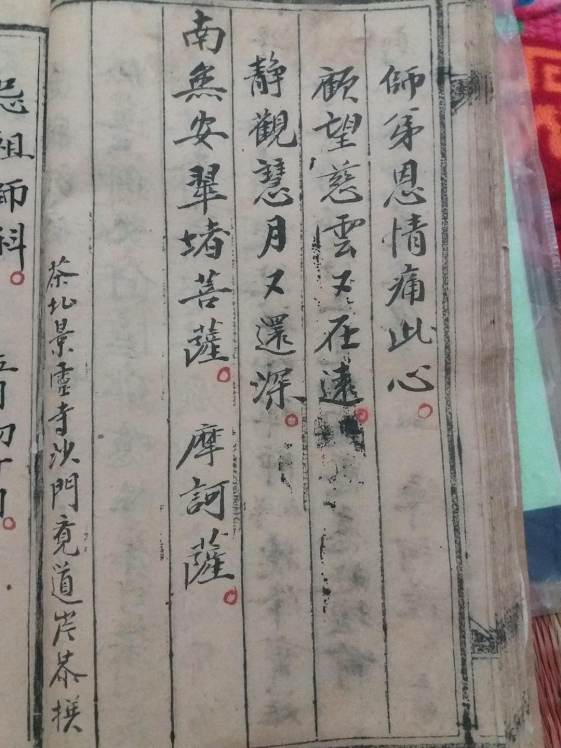 師弟恩情痛此心
顧望慈雲又在遠
靜觀慧月又還深
南無安犂堵菩薩 摩訶薩
茶北景靈寺沙門竟道岸恭撰
忌祖師科 五月初十日